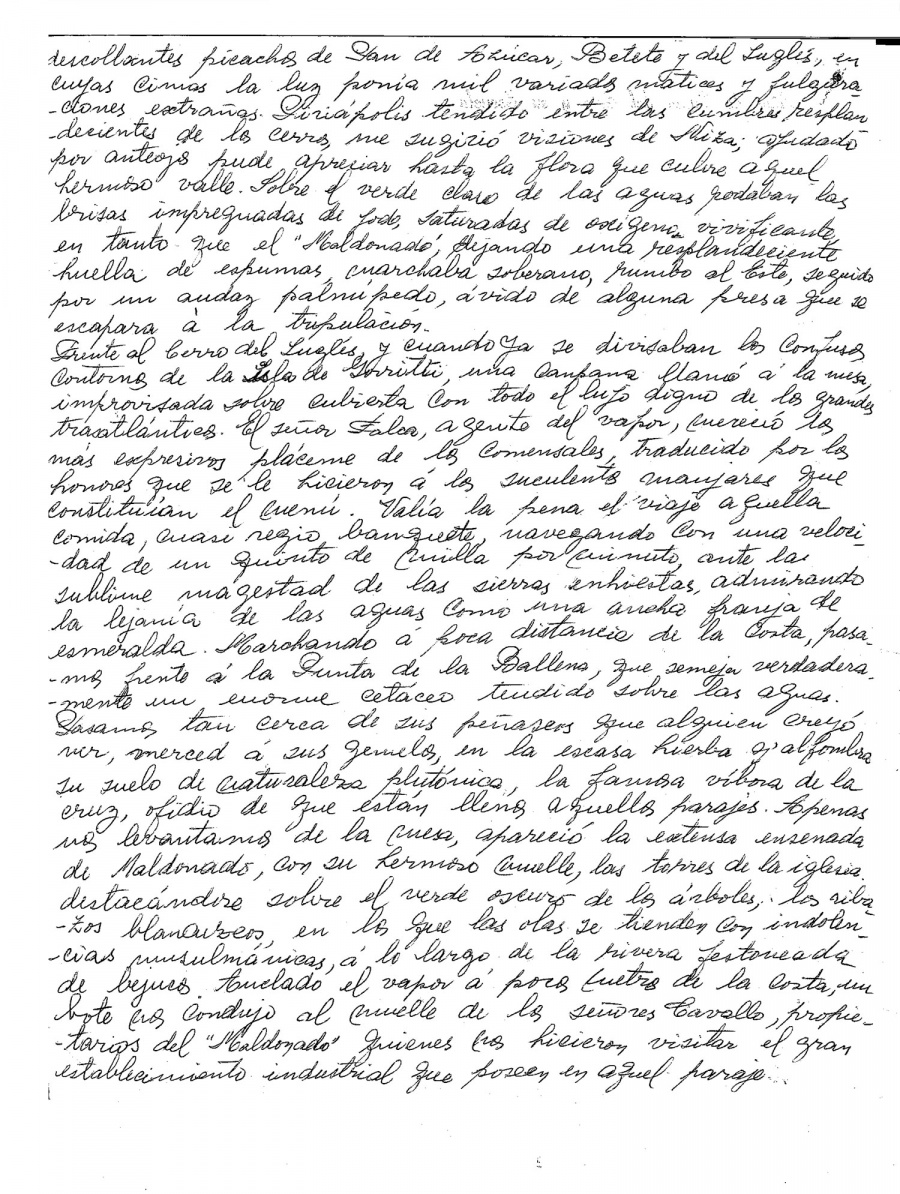 descollantes picachos de Pan de Azúcar, Betete y del Inglés, en
cuyas cimas la luz ponía mil variados mátices y fulgura-
-ciones extrañas. Piriápolis tendido entre las cumbres resplan
-decientes de los cerros, me sugirió visiones de Niza; ayudado
por anteojos pude apreciar hasta la flora que cubre aquel
hermoso valle. Sobre el verde claro de las aguas rodaban las
brisas impregnadas de yodo, saturadas de oxígeno vivificante,
en tanto que el "Maldonado", dejando una resplandeciente
huella de espumas, marchaba soberano, rumbo al Este, seguido
por un audaz palmípedo, ávido de alguna presa que se
escapara à la tripulación.
Frente al Cerro del Inglés, y cuando ya se divisaban los confusos
contornos de la Isla de Gorriti, una campana llamó á la mesa,
improvisada sobre cubierta con todo el lujo digno de los grandes
trasatlánticos. El señor Falca, agente del vapor, mereció los
más expresivos plácemes de los comensales, traducido por los
honores que se le hicieron á los suculentos manjares que
constituían el menú. Valía la pena el viaje aquella
comida, cuasi regio banquete, navegando con una veloci-
-dad de un quinto de milla por minuto, ante la
sublime magestad de las sierras enhiestas, admirando
la lejanía de las aguas como una ancha franja de
esmeralda. Marchando á poca distancia de la costa, pasa-
-mos frente á la Punta de la Ballena, que semeja verdadera-
-mente un enorme cetáceo tendido sobre las aguas.
Pasamos tan cerca de sus peñascos que alguien creyó
ver, merced á sus gemelos, en la escasa hierba q' alfombra
su suelo de naturaleza plutónica, la famosa víbora de la
cruz, ofidio de que están llenos aquellos parajes. Apenas
nos levantamos de la mesa, apareció la extensa ensenada
de Maldonado, con su hermoso muelle, las torres de la iglesia
destacándose sobre el verde oscuro de los árboles, los riba-
-zos blanduzcos, en los que las olas se tienden con indolen-
-cias musulmánicas, á lo largo de la rivera festoneada
de bejucos. Anclado el vapor á pocos metros de la costa, un
bote nos condujo al muelle de los señores Cavallo, propie-
-tarios del "Maldonado" quienes nos hicieron visitar el gran
establecimiento industrial que poseen en aquel paraje.